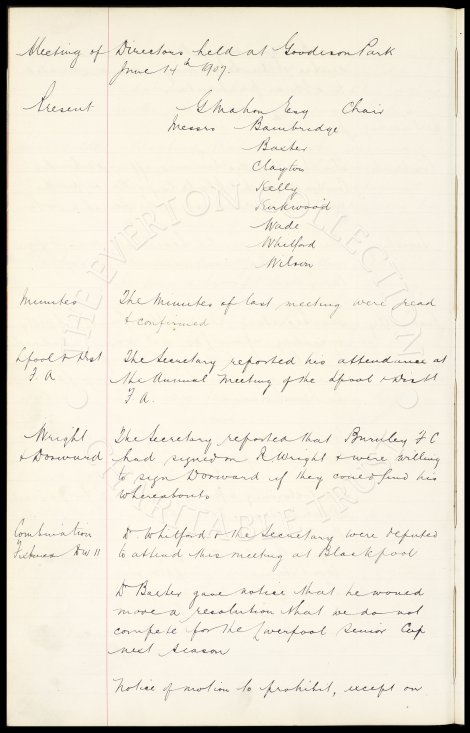 Meeting of Directors held at Goodison Park
June 14th 1907.
Present G Mahon Esq Chair
Messrs Bainbridge
Baxter
Clayton
Kelly
Kirkwood
Wade
Whitford
Wilson
Minutes The Minutes of last meeting were read
& confirmed
Lpool & Dist The Secretary reported his attendance at
F. A the Annual Meeting of the Lpool & Distt
F A.
Wright The Secretary reported that Burnley F C
& Dorward had signed on R Wright & were willing
to sign Dorward if they could find his
whereabouts
Combination Dr Whitford & the Secretary were deputed
Fixtures Div II to attend this meeting at Blackpool
Dr Baxter gave notice that he would
move a resolution that we do not
compete for the Liverpool Senior Cup
next season
Notice of motion to prohibit, except on
THE EVERTON COLLECTION
CHARITABLE TRUST